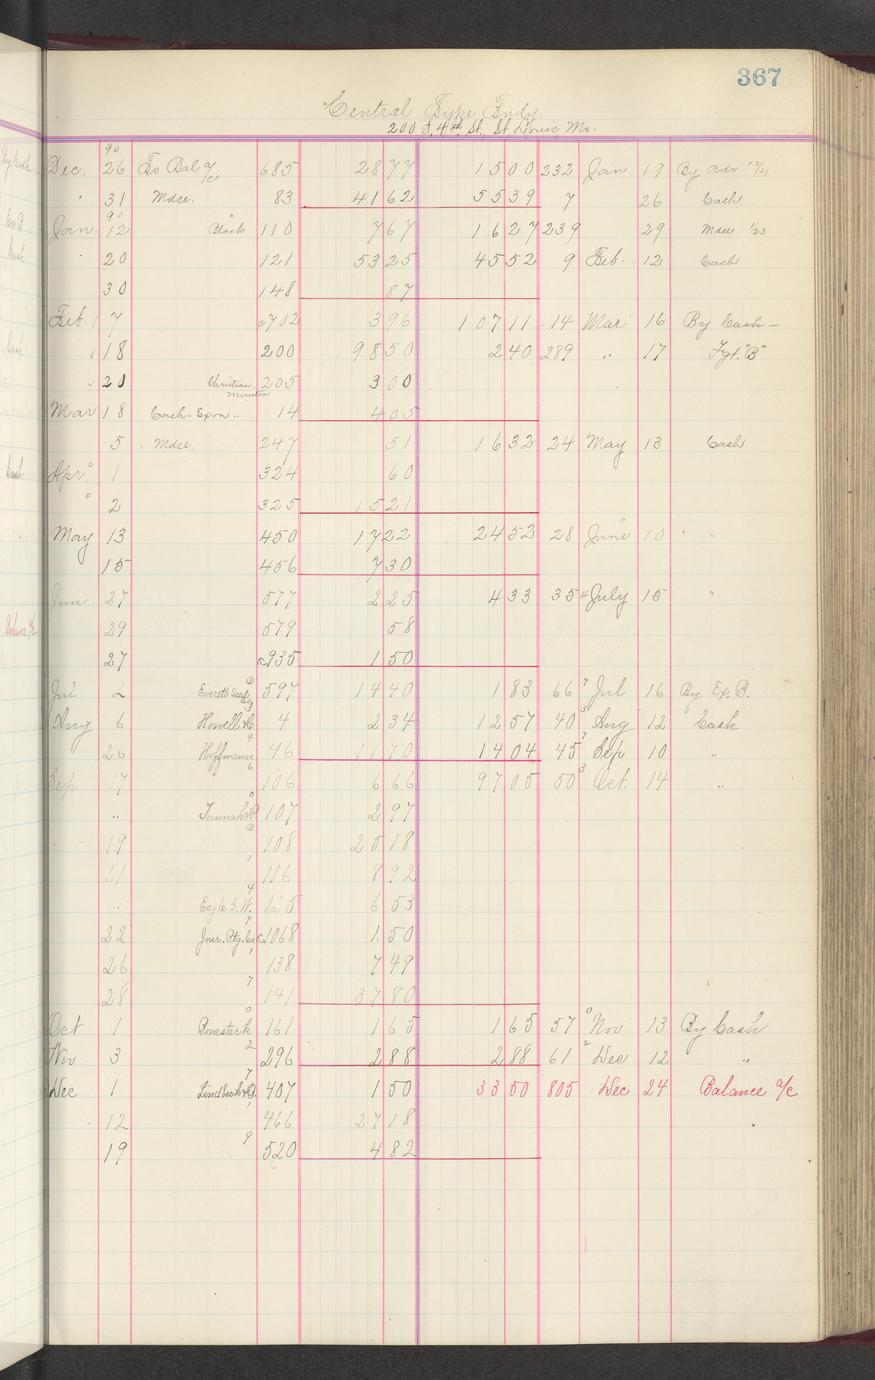 367
Central Type Fndy.
200 S. 4th St., St. Louis, Mo.
90
Dec. 26 To Bal a/c 685 28 77 15 00 232 Jan 19 By adv. 12/31
" 31 Mdse. 83 41 62 55 39 7 26 Cash
91
Jan. 12 Black 110 7 67 16 27 239 29 Mdse 1/23
" 20 121 53 25 45 52 9 Feb. 12 Cash
30 148 87
Feb. 7 c702 3 96 107 11 14 Mar 16 By Cash –
18 200 98 50 2 40 289 " 17 Fgt. "B"
20 Christian Monitor 205 3 00
Mar 18 Cash - Expn .. 14 4 05
5 Mdse. 247 51 16 32 24 May 13 Cash
Apr. 1 324 60
2 325 15 21
May 13 450 17 22 24 52 28 June 10 "
15 456 7 30
Jun 27 577 2 25 4 33 35 4 July 15 "
29 579 58
27 c935 1 50
Jul 2 597 14 40 1 83 66 7 Jul 16 By Ex. B.
Aug 6 Howell & C 4 2 34 12 57 40 3 Aug 12 Cash
26 Hoffmann 46 11 70 14 04 45 7 Sep 10 "
Sep 17 106 6 66 97 05 50 3 Oct. 14 "
" 107 2 97
19 108 25 18
21 116 8 92
" Eagle S. W. 125 6 53
22 Jour. Ptg. Co c1068 1 50
26 138 7 49
28 141 37 80
Oct 1 Bonesteel 161 1 65 1 65 57 0 Nov 13 By Cash
Nov 3 296 2 88 2 88 61 2 Dec 12 "
Dec 1 407 1 50 33 50 805 Dec 24 Balance a/c
12 466 27 18
19 520 4 82